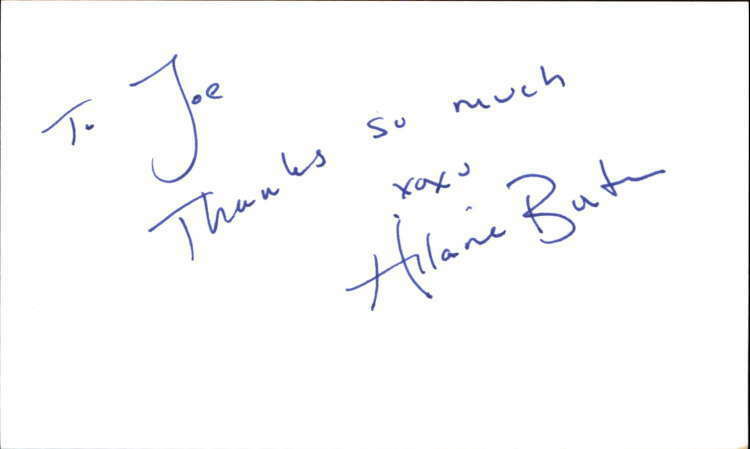 To Joe
Thanks so much
xoxo
Hilarie Burton